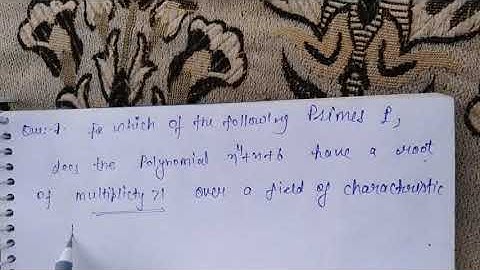 Que:-1. for which of the following Primes P,
does the Polynomial x⁴+x+6 have a root
of multiplicty >1 over a field of characteristic